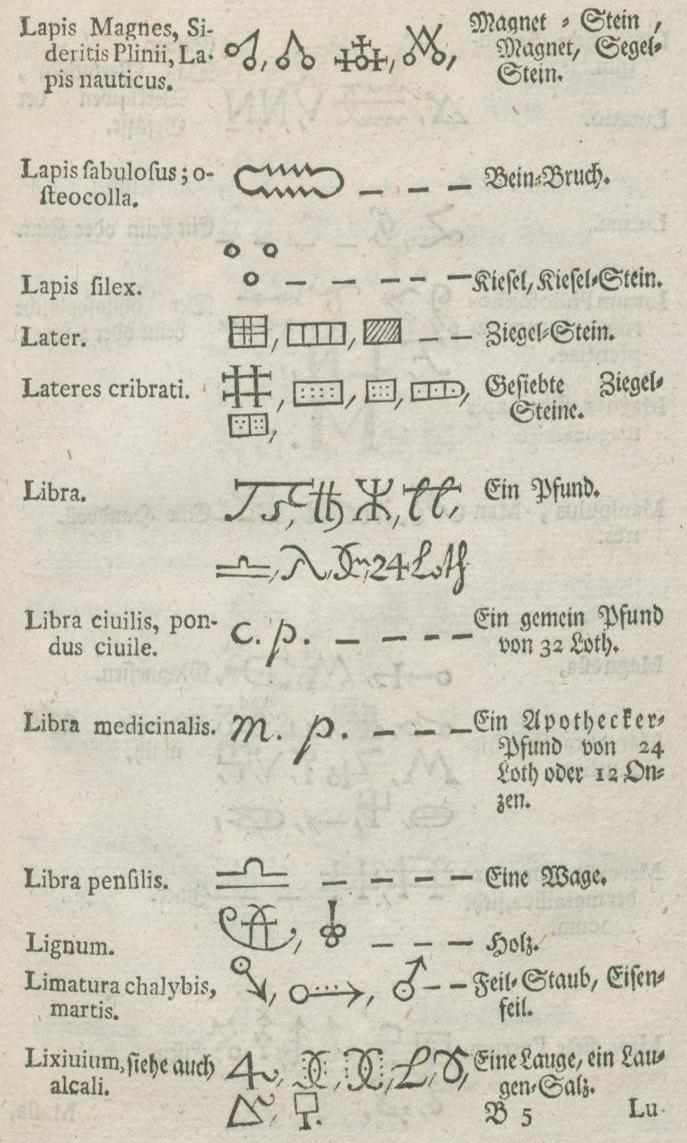 Lapis Magnes, Si- Magnet-Stein,
deritis Plinii, La- Magnet, Segel-
pis nauticus. Stein.
Lapis ſabuloſus; o- Bein-Bruch.
ſteocolla.
Lapis ſilex. Kieſel, Kieſel-Stein.
Later. Ziegel-Stein.
Lateres cribrati. Geſiebte Ziegel-
Steine.
Libra. Ein Pfund.
24 Loth
Libra ciuilis, pon- c. p. Ein gemein Pfund
dus ciuile. von 32 Loth.
Libra medicinalis. m. p. Ein Apothecker-
Pfund von 24
Loth oder 12 On-
zen.
Libra penſilis. Eine Wage.
Lignum. Holz.
Limatura chalybis, Feil-Staub, Eiſen-
martis. feil.
Lixiuium, ſiehe auch Eine Lauge, ein Lau-
alcali. gen-Salz.
B 5 Lu-